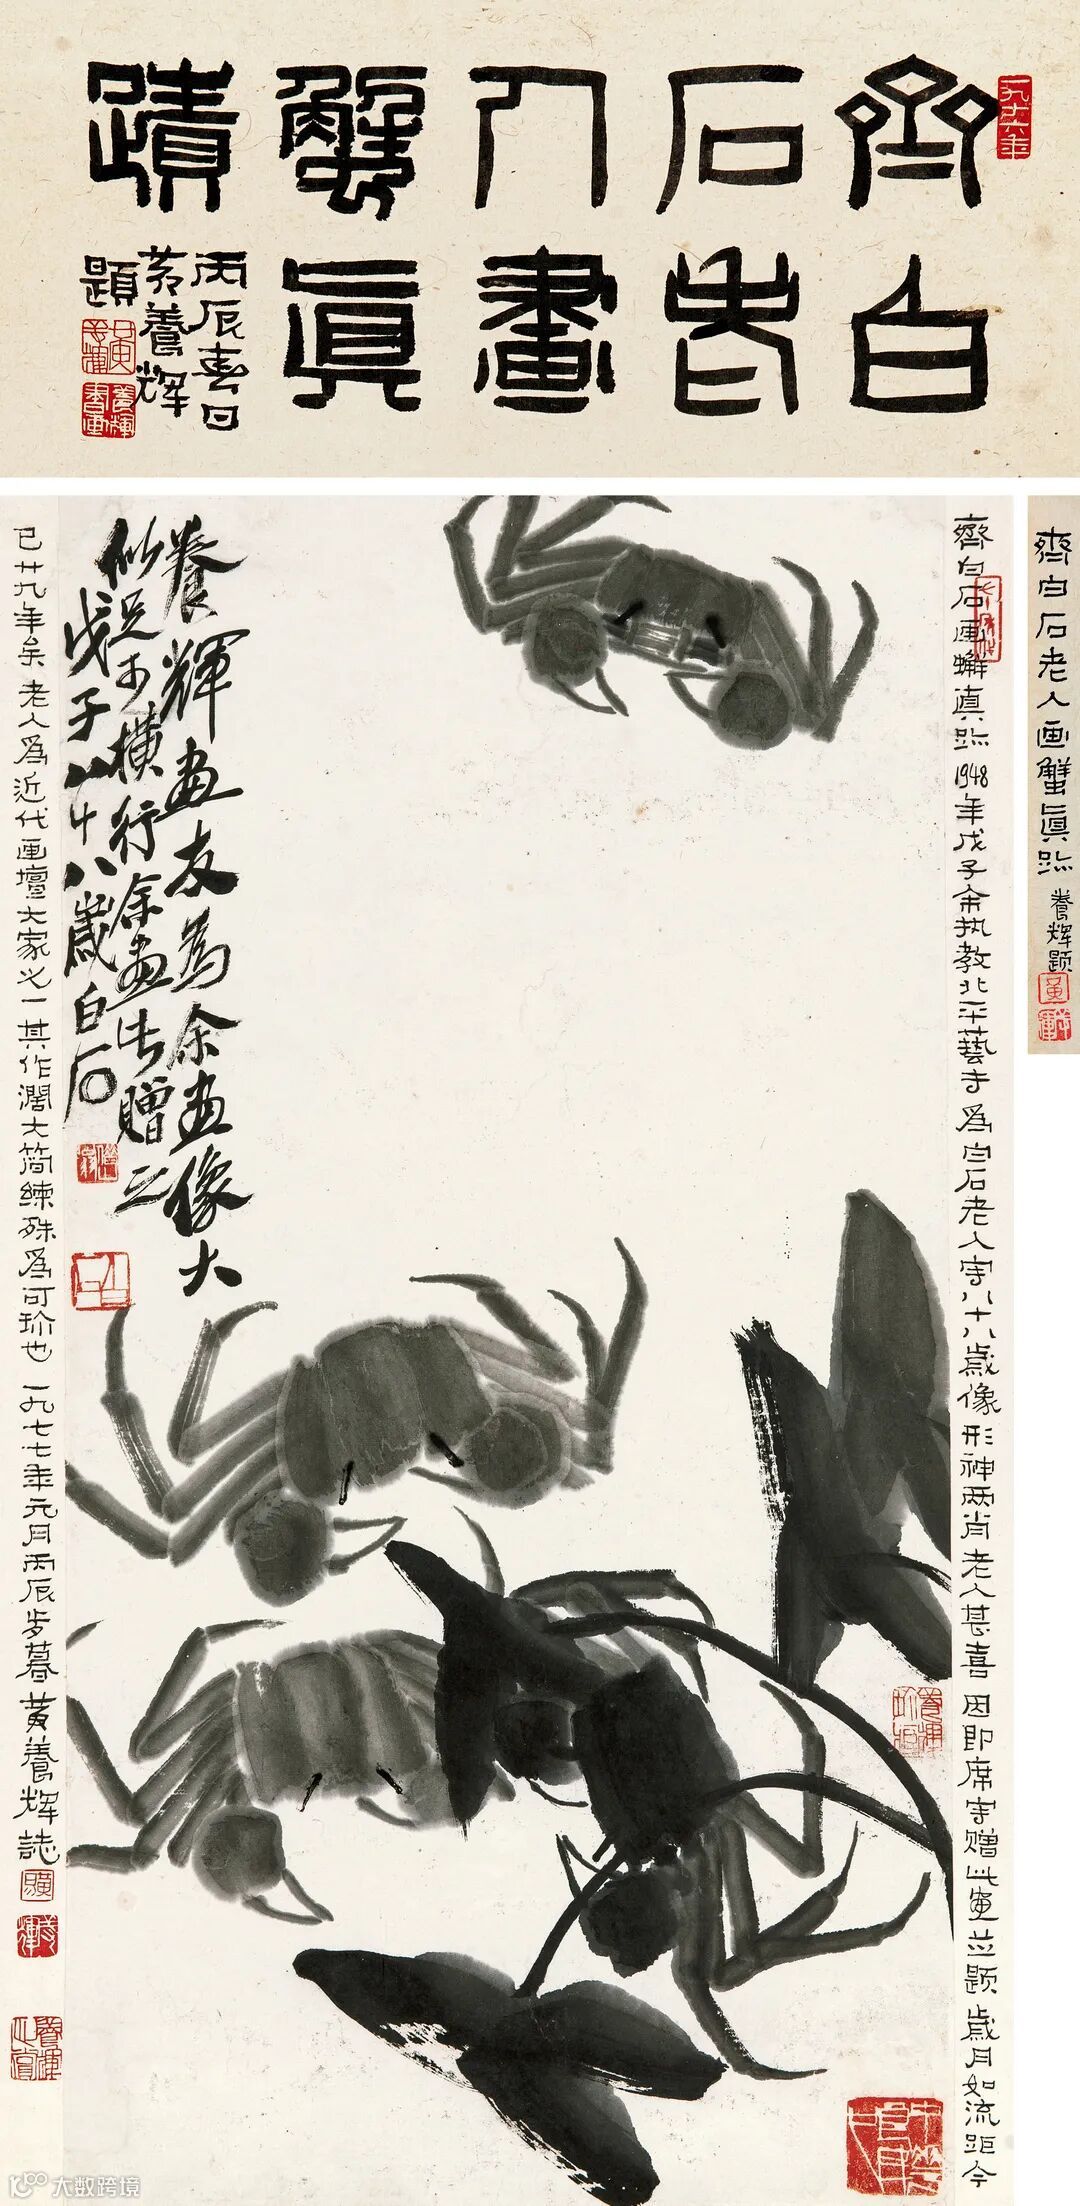 齊白
石老
人畫
蟹真
蹟
丙辰春日
黄養輝
題
一九七六年
養輝畫友為余畫像大
似足可橫行余畫此贈之
戊子八十八歲白石
齊白石画蠏真跡 1948年戊子余执教北平藝专為白石老人写八十八歲像形神两肖老人甚喜因即席写赠此画並题歲月如流距今
已廿九年矣老人為近代画壇大家之一其作濶大简練殊為可珍也一九七七年元月丙辰岁暮黄養辉誌
齊白石老人画蟹真跡
養辉题
大数跨境